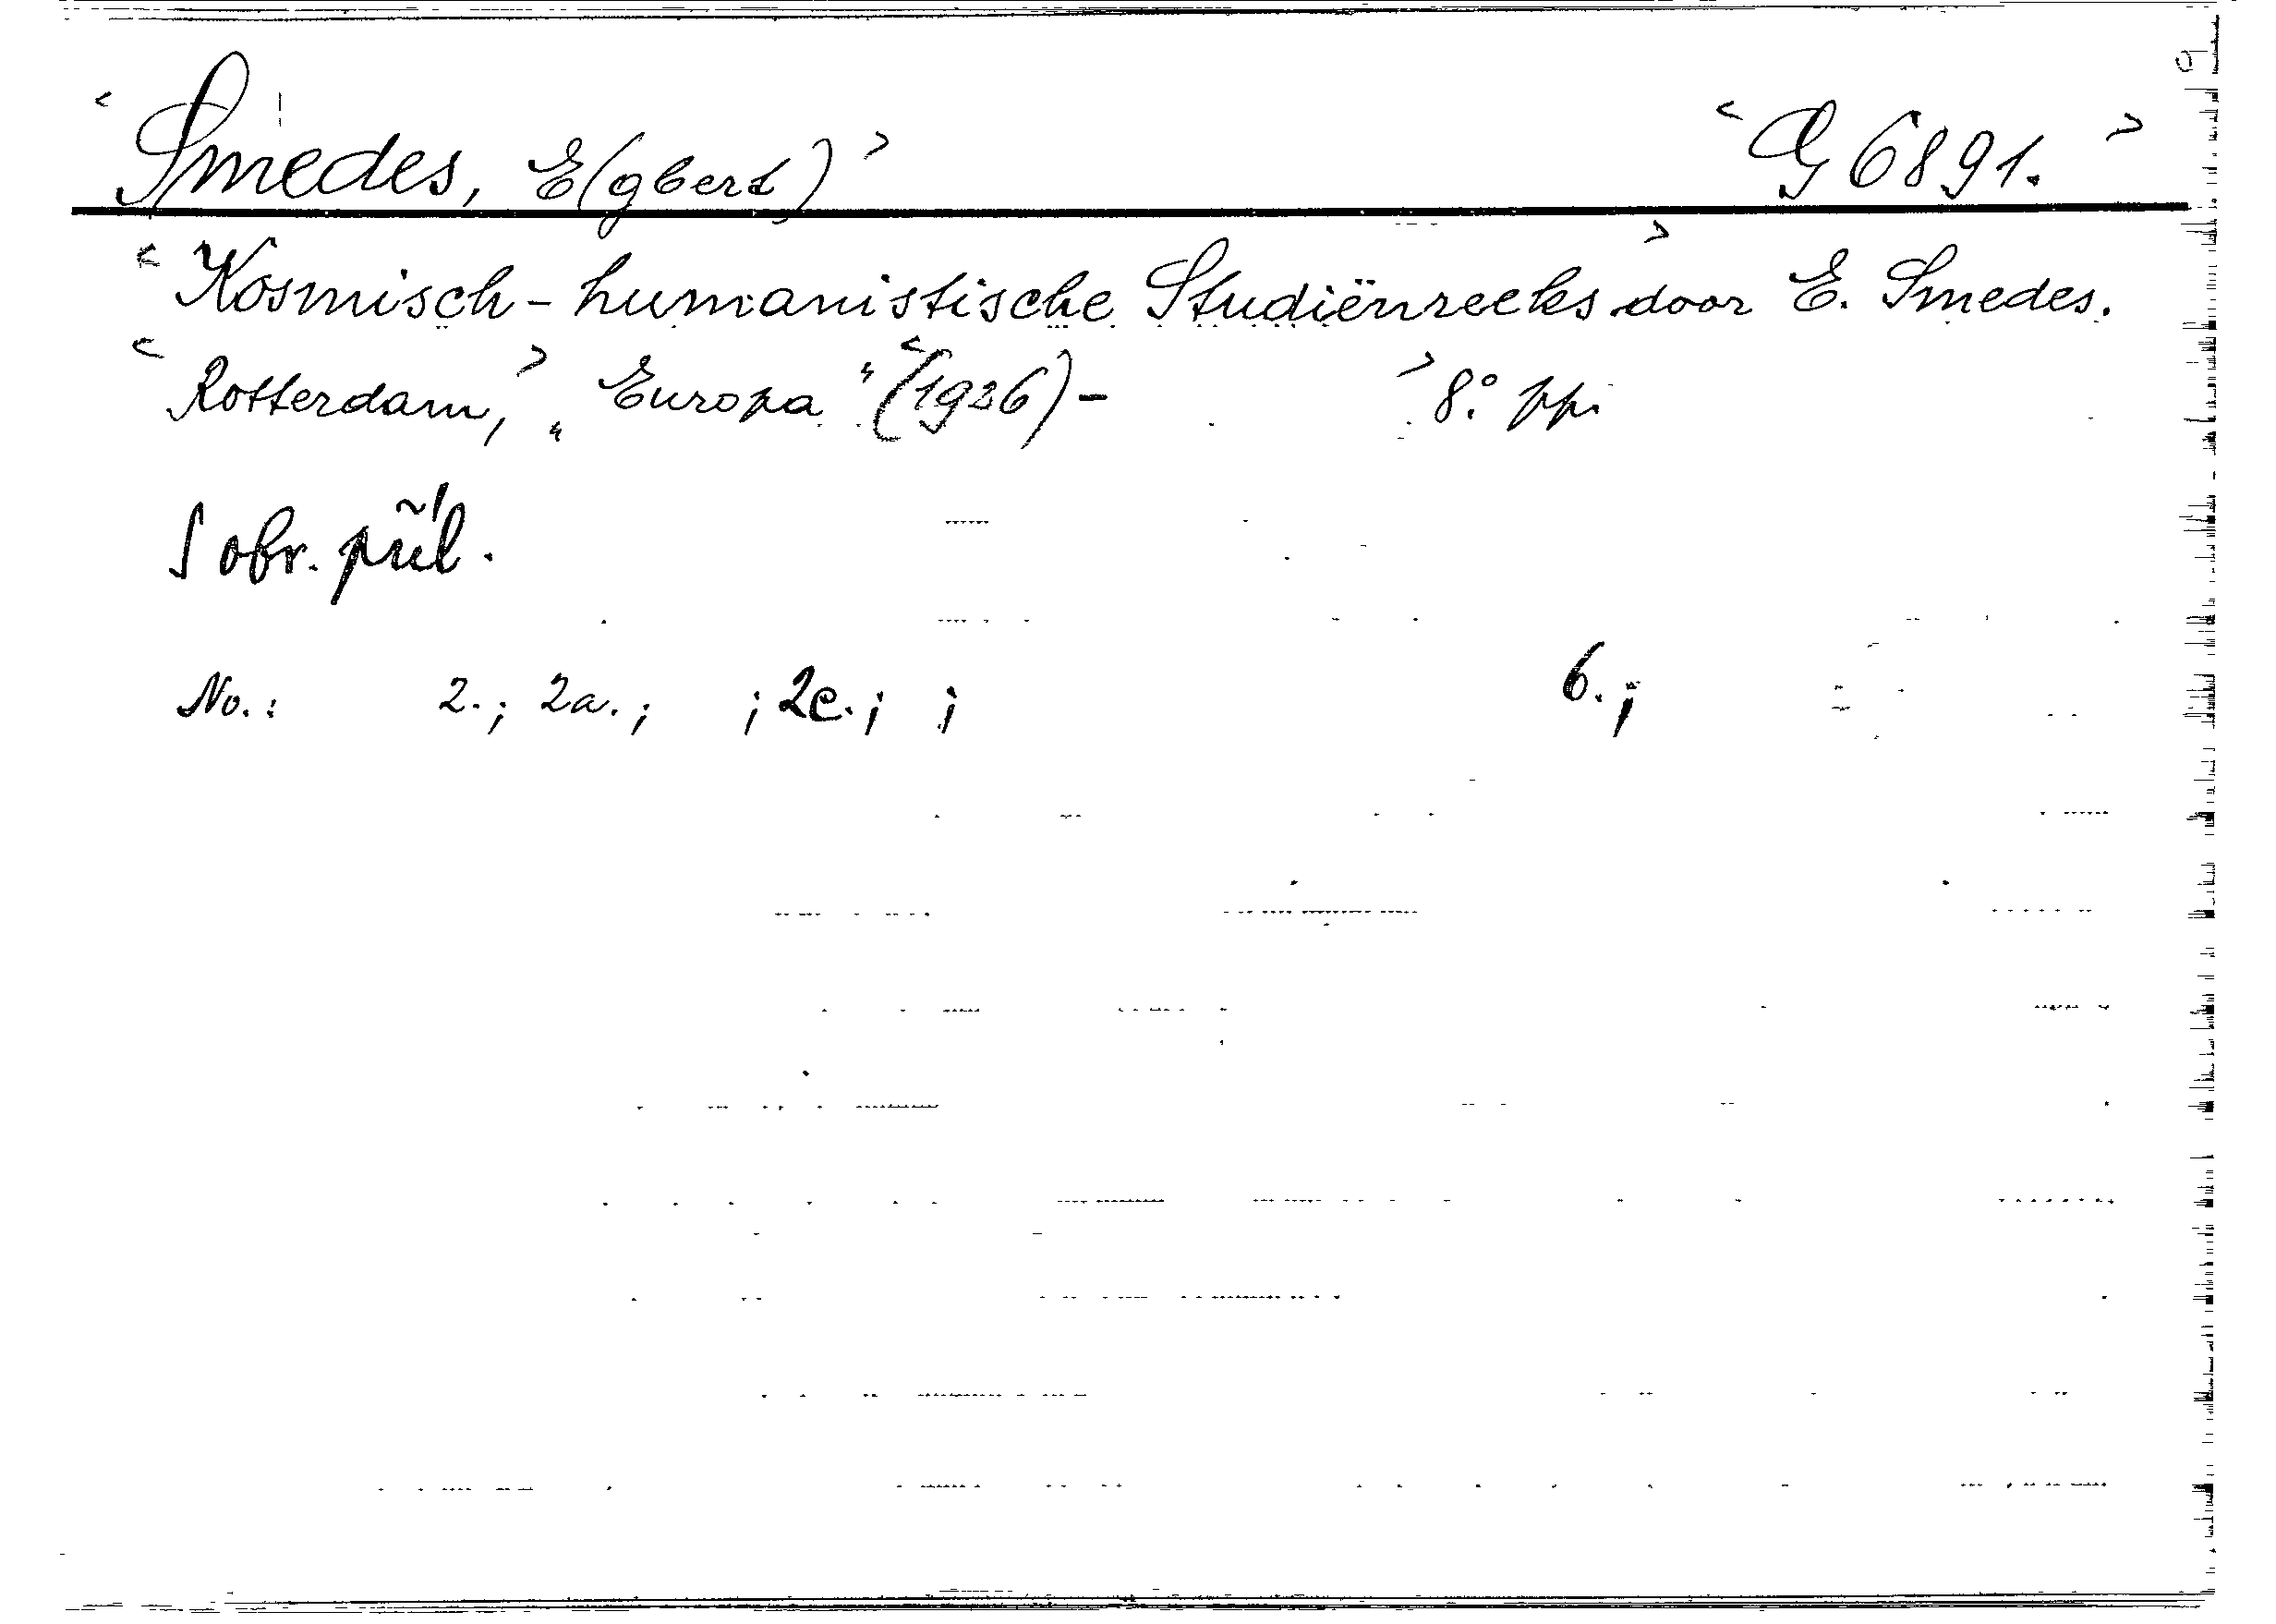 < Smedes, E(gbert) > < G 6891. >
< Kosmisch-humanistische Studiënreeks > door E. Smedes.
< Rotterdam, > „Europa“ < (1926)- > 8° pp.
S obr. příl.
No.: 2.; 2a.; ; 2c.; ; 6.;